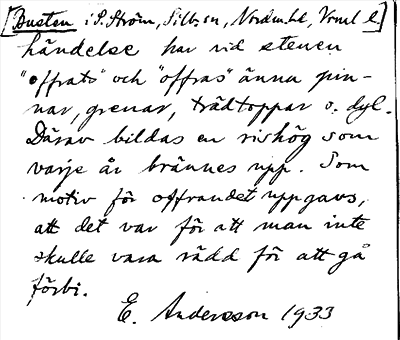 [Busten i S. Ström, Silb. sn, Nordm. hd, Vrml l]
händelse har vid stenen
"offrats" och "offras" ännu pin-
nar, grenar, trädtoppar o. dyl.
Därav bildas en rishög som
varje år brännes upp. Som
motiv för offrandet uppgavs,
att det var för att man inte
skulle vara rädd för att gå
förbi.
E. Andersson 1933